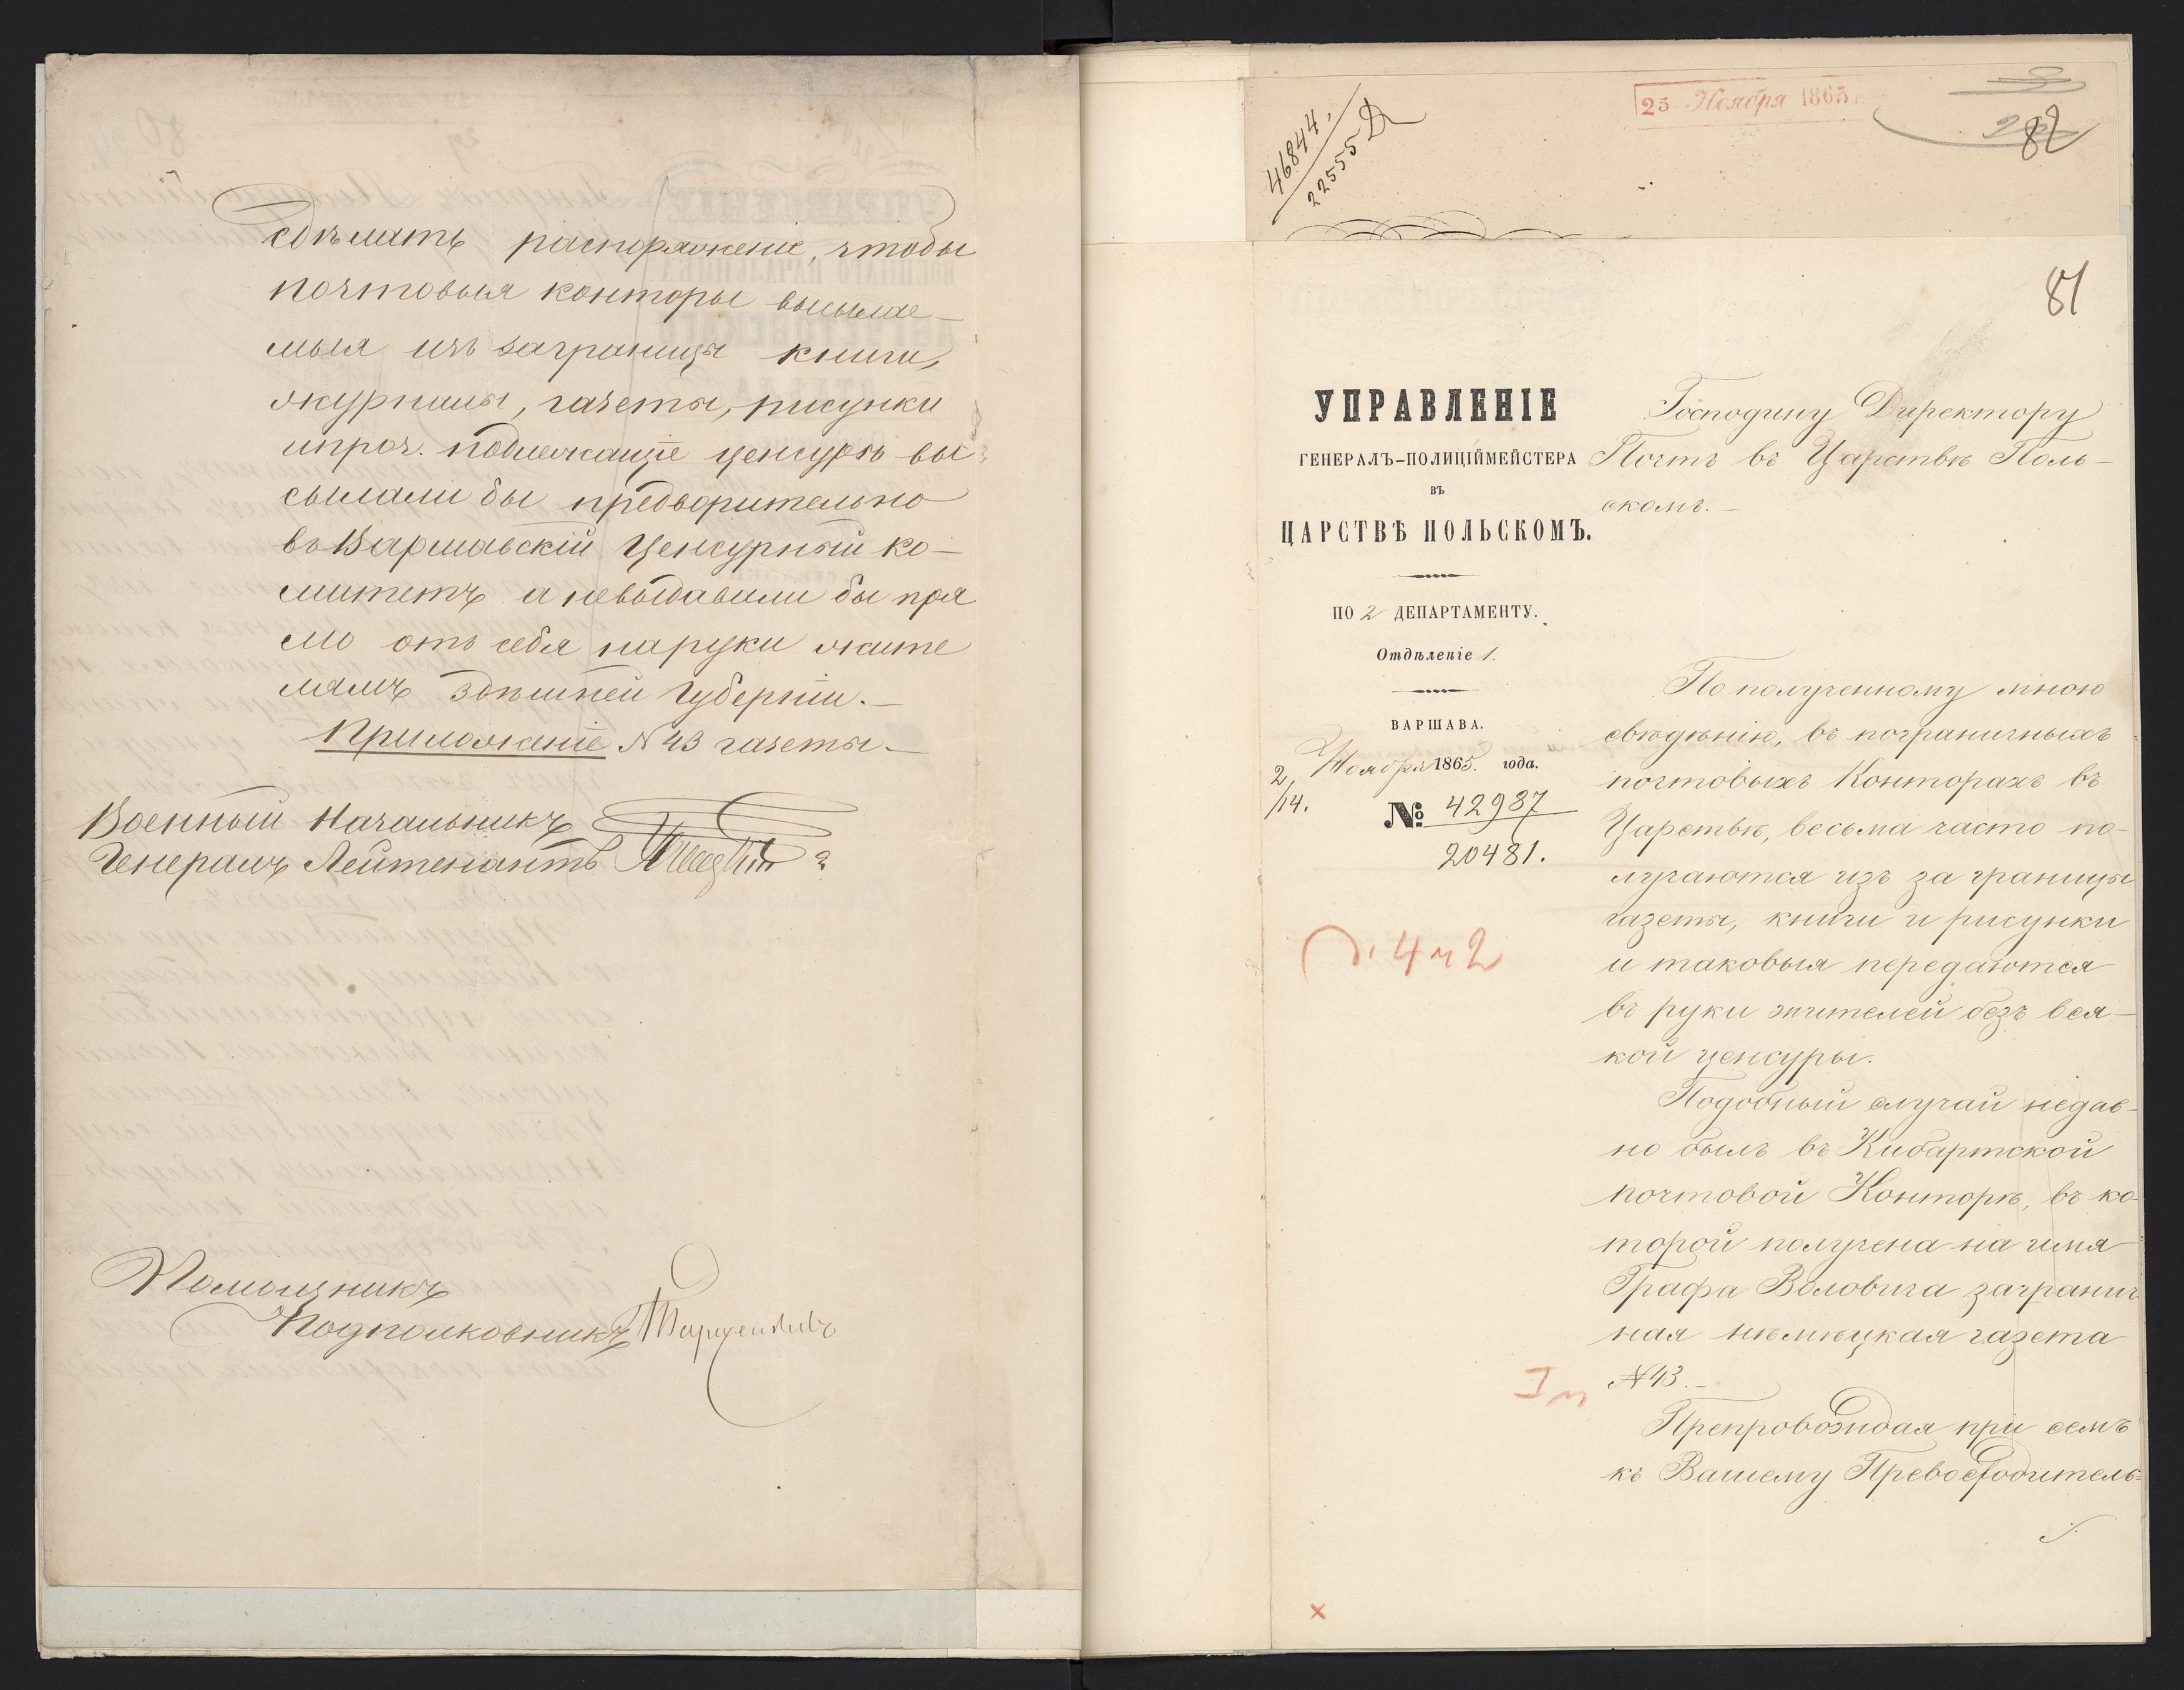 сдѣлать распоряженіе, чтобы
почтовыя конторы высылае-
мыя изъ заграницы книги,
журналы, газеты, рисунки
ипроч. подлежащіе ценсурѣ вы
сылали бы предворительно
въ Варшавскій Ценсурный ко-
митетъ а невыдавали бы пря
мо отъ себя наруки жите
лямъ здѣшней Губерніи.-
Приложеніе N 43 газеты.-
Военный Начальникъ
Генералъ Лейтенантъ
Помощникъ
Подполковникъ
46844.
22555 Д
25 Ноября 1865
82
81
УПРАВЛЕНІЕ
ГЕНЕРАЛЪ-ПОЛИЦІЙМЕЙСТЕРА
ВЪ
ЦАРСТВѢ ПОЛЬСКОМЪ.
ПО 2 ДЕПАРТАМЕНТУ.
Отдѣленіе 1.
ВАРШАВА.
2/14. Ноября 1865. года.
№ 42987
20481.
4 2
Господину Директору
Почтъ въ Царствѣ Поль-
скомъ.-
По полученному мною
свѣдѣнію, въ пограничныхъ
почтовыхъ Конторахъ въ
Царствѣ, весьма часто по-
лучаются изъ за границы
газеты, книги и рисунки
и таковыя передаются
въ руки жителей безъ вся-
кой ценсуры.
Подобный случай недав-
но былъ въ Кибартской
почтовой Конторѣ, въ ко-
торой получена на имя
Графа Воловича загранич-
ная нѣмѣцкая газета
N 43.-
Препровождая при семъ
къ Вашему Превосходитель-